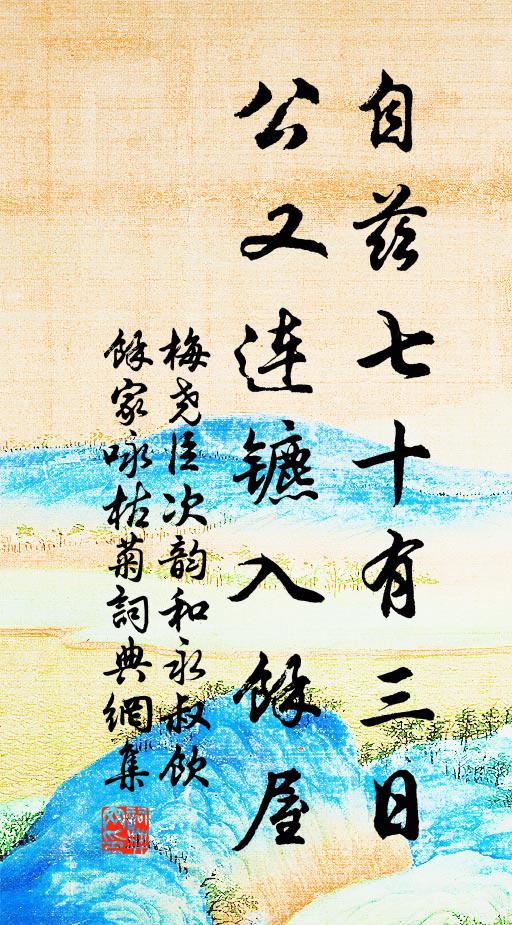 自兹七十有三日
公又连镳入馀屋
梅尧臣次韵和永叔饮
馀家咏枯菊詞典網集